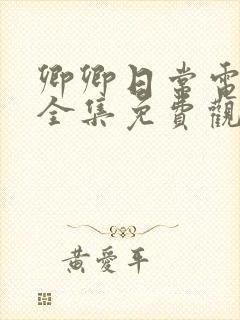 卿卿日常電
全集免費觀
黃愛平